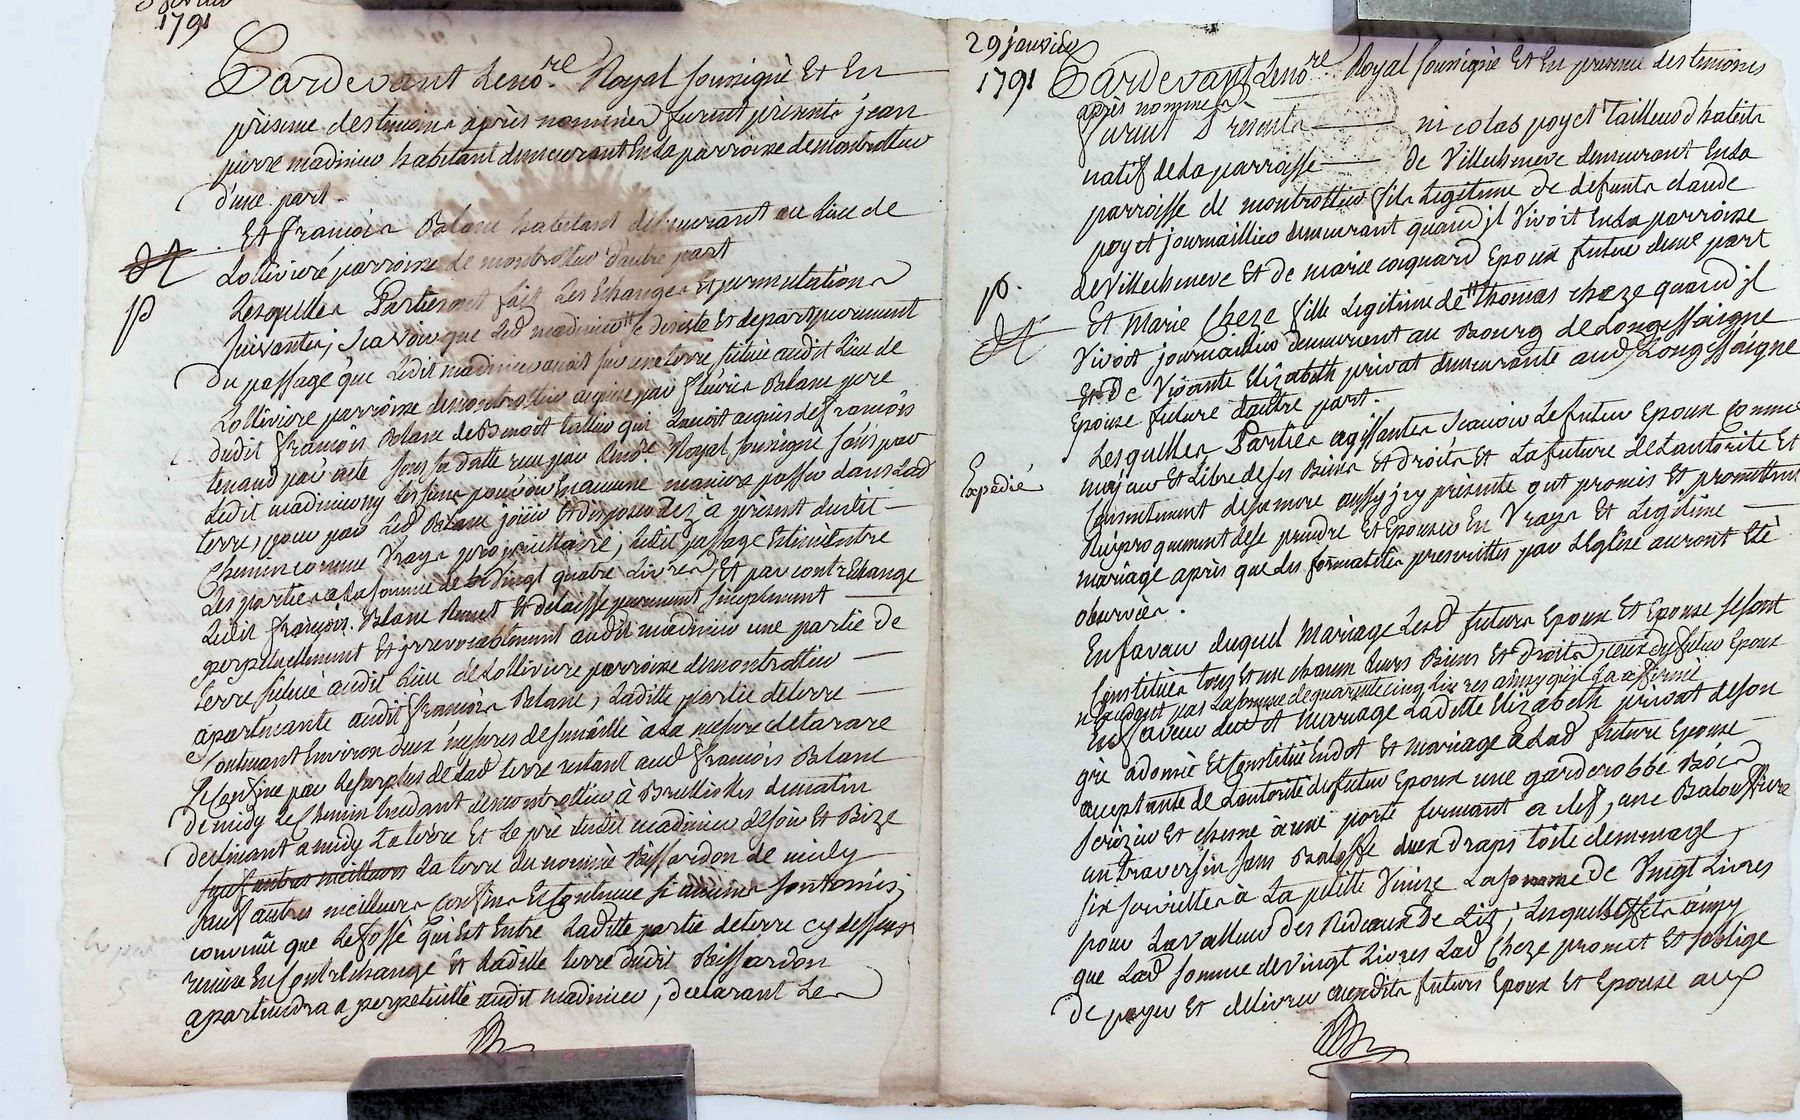 1791
Pardevant Le no.re Royal soussigné Et En
présence des temoins après nommés furent présents jean
pierre madinier habitant demeurant En la parroisse de montrottier
d'une part
Et françois Blanc habitant demeurant au lieu de
Lollivière parroisse de montrottier d'autre part
Lesquelles Parties ont fait les Echanges Et permutations
suivantes, scavoir que Led madinier se desiste Et depart purement
du passage que Ledit madinier avait sur une terre située audit Lieu de
Lollivière parroisse de montrottier aquise par fleurie Blanc pere
dudit françois Blanc de Benoit qui Lavoit aquise de françois
par acte sous sa datte reçu par Le no.re Royal soussigné sans que
Ledit madinier ny les siens puissent En aucune maniere passer dans Lad
terre, pour par Led Blanc jouir Et disposer dès à présent dudit
Chemin comme Vraye propriettaire, ledit passage Estimé Entre
Les parties a la somme de Vingt quatre Livres, Et par contrEchange
Ledit françois Blanc Remet Et delaisse purement simplement
perpetuellement Et jrrevocablement audit madinier une partie de
terre située audit Lieu de Lollivière parroisse de montrottier
apartenante audit françois Blanc, Ladite partie de terre
Contenant Environ deux mesures de semaille à la mesure de tarare
se Confine par le surplus de Lad terre restant aud françois Blanc
de midy le chemin tendant de montrottier à Brullioles de matin
declinant a midy La terre Et Le pré dudit madinier de soir Et Bize
sauf autres meilleurs La terre du nommé Bissardon de midy
sauf autres meilleurs Confins Et Continue si aucuns sont omis,
convenu que Le fossé qui Est Entre Ladite partie de terre cy dessus
remise En ContrEchange Et Ladite terre dudit Bissardon
apartiendra a perpetuitté audit madinier, declarant Les
29 janvier
1791
Pardevant Le no.re Royal soussigné Et En présence des temoins
après nommés
furent Présents nicolas poyet Tailleur d'habits
natif de la parroisse de Villecheneve demeurant En La
parroisse de montrottier fils Legitime de defunts claude
poyet journaillier demeurant quand il Vivoit En La parroisse
de Villecheneve Et de marie coquard Epoux futur d'une part
p.
Et Marie Cheze fille Legitime de thomas cheze quand il
Vivoit journaillier demeurant au Bourg de Longessaigne
Et de Vivante Elizabeth privat demeurante aud Longessaigne
Epouse future d'autre part.
Lesquelles Parties agissantes scavoir Le futur Epoux comme
Expedié
majeur Et Libre de ses Biens Et droits Et La future de Lautorité Et
Consentement de sa mere aussy jcy présente ont promis Et promettent
Reciproquement de se prendre Et Epouser En Vraye Et Legitime
mariage après que les formalités prescrittes par L'Eglise auront Eté
observées.
En faveur duquel Mariage Lesd futurs Epoux Et Epouse se sont
Constitués tous Et un chacun Leurs Biens Et Droits, ceux du futur Epoux
n'excedant pas La somme de quarante cinq Livres ainsy qu'il L'a affirmé
En faveur dud Mariage Ladite Elizabeth privat de son
gré a donné Et Constitué En dot Et mariage a Lad future Epouse
acceptante de L'autorité du futur Epoux une garderobbe Bois
Serizier Et chesne à une porte fermant a clef, une Balouffiere
un traversin sans Balouffe deux draps toile de menage,
six serviettes à La petitte Venize La somme de Vingt Livres
pour La valleur des Rideaux De Lit, Lesquels Effets ainsy
que Lad somme de vingt Livres Lad Cheze promet Et s'oblige
de payer Et delivrer auxdits futurs Epoux Et Epouse aux